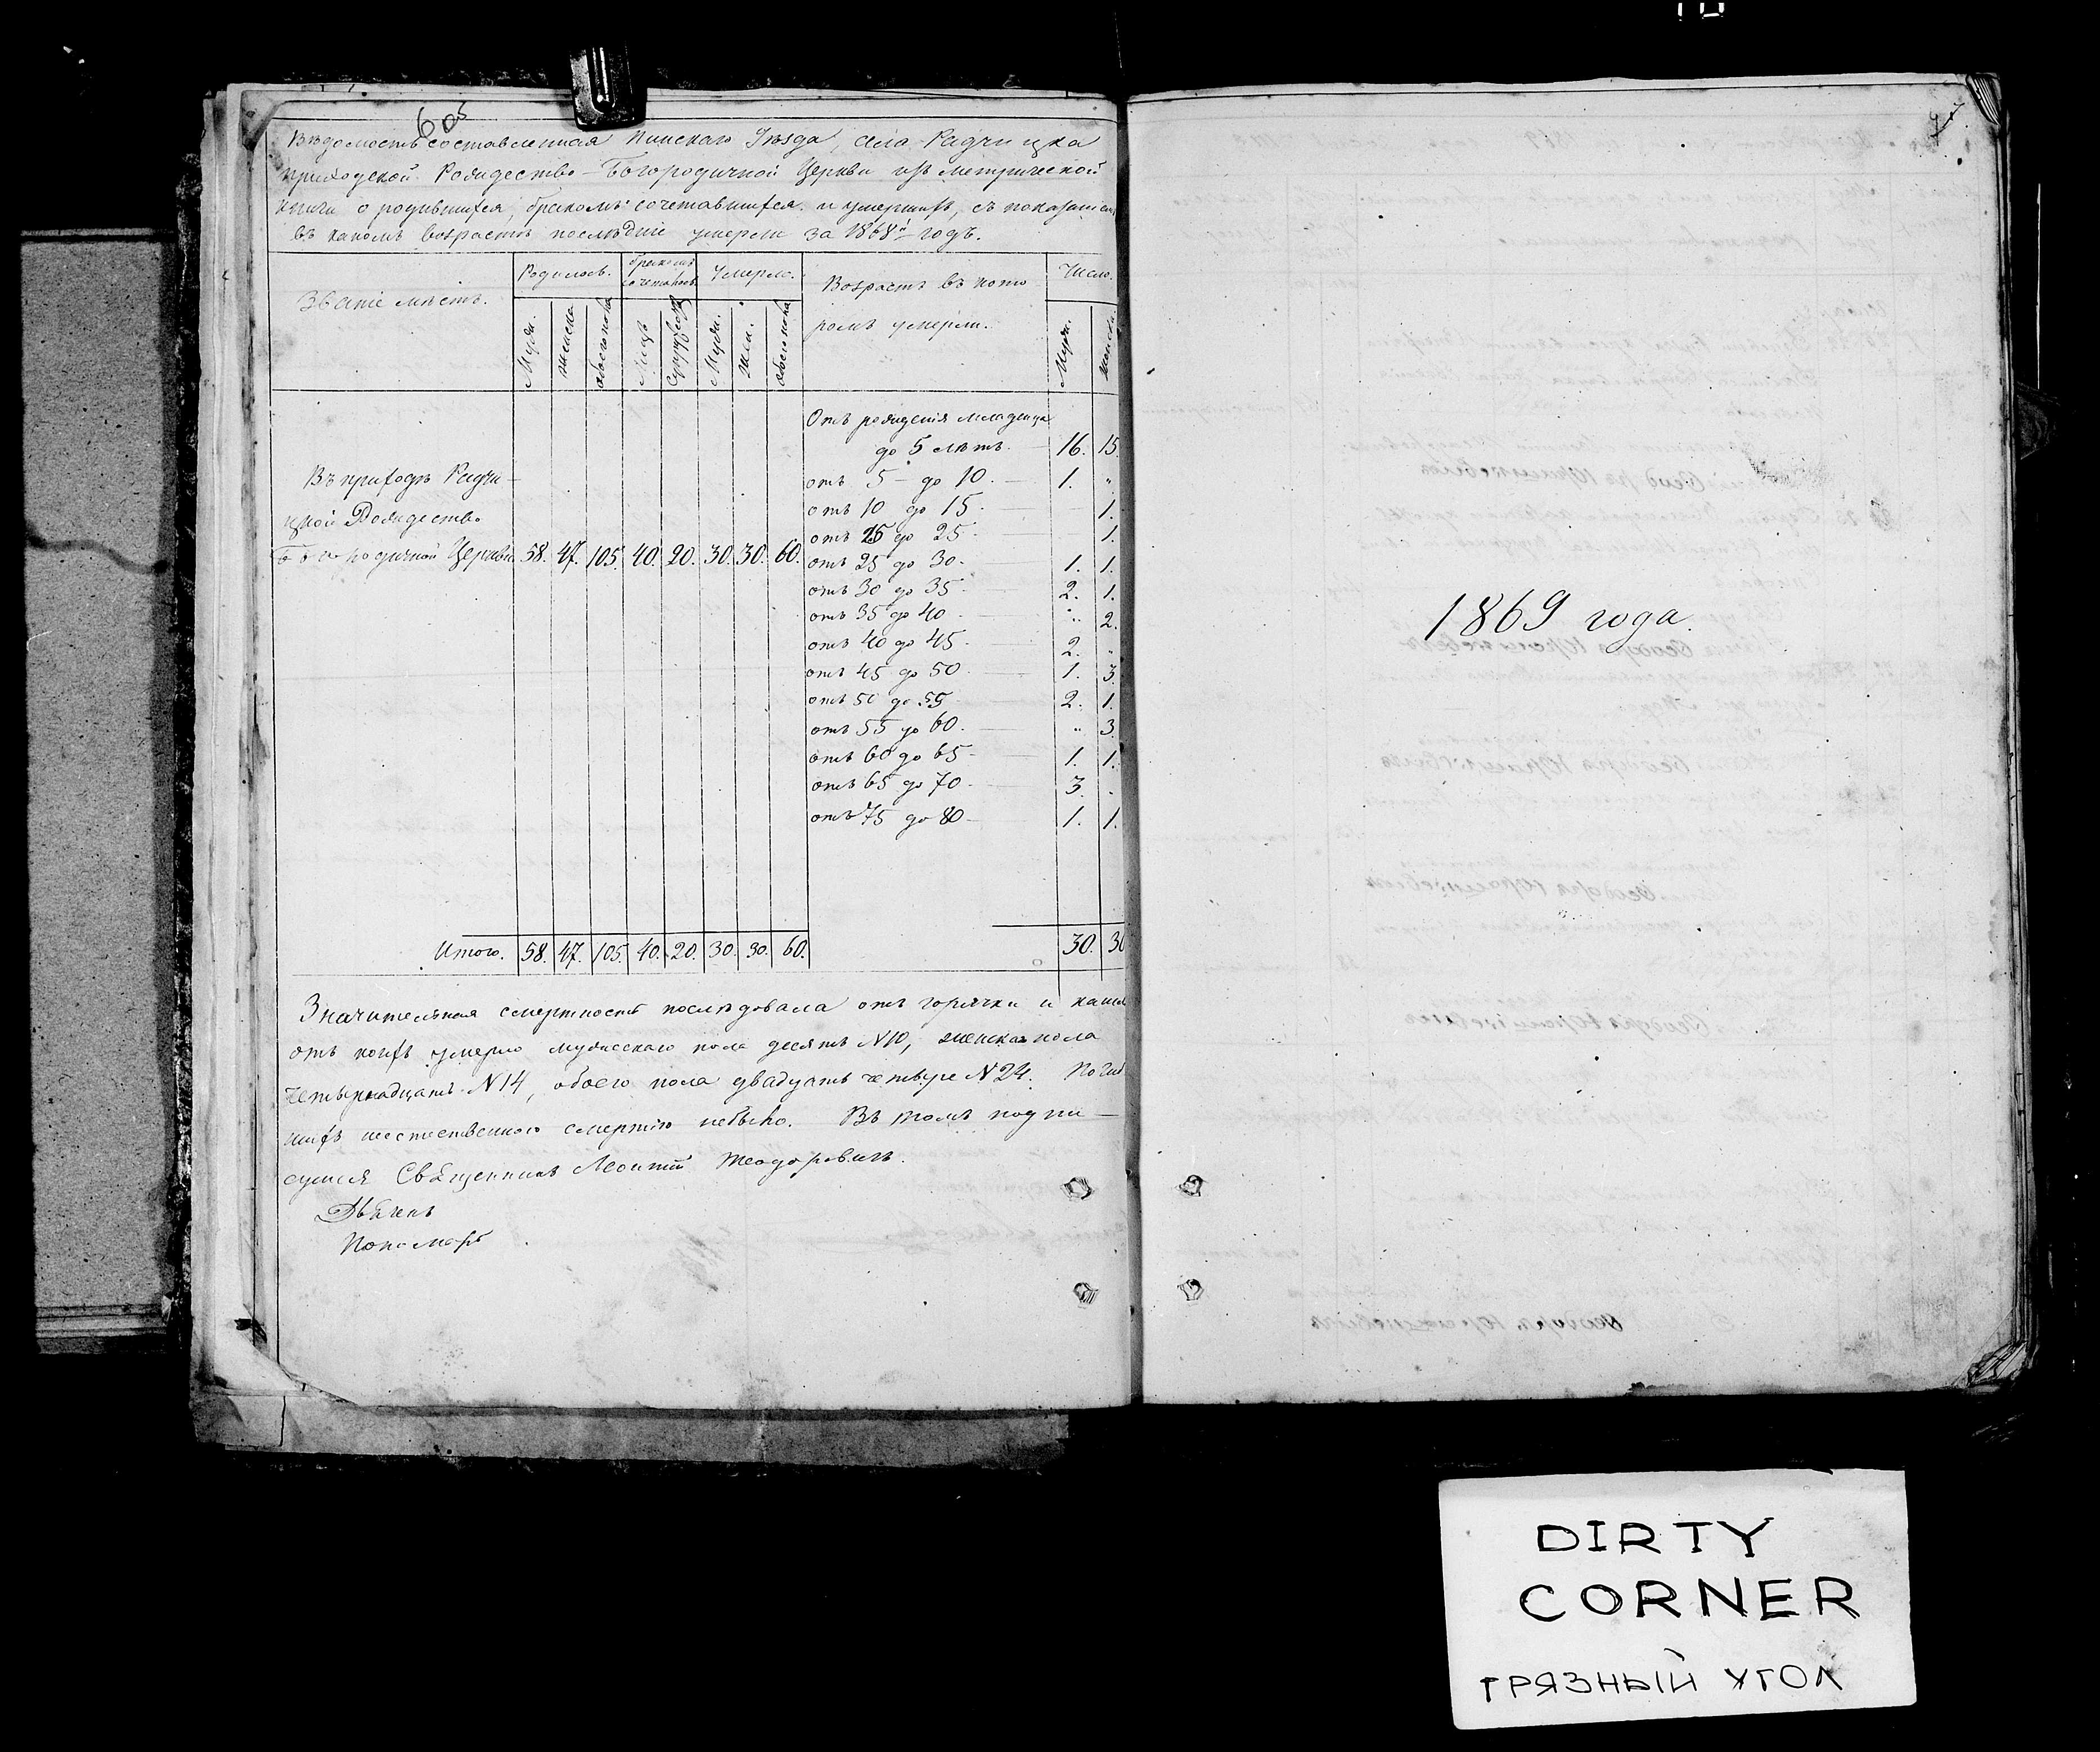 6 об
Вѣдомость составленная Пинскаго Уѣзда, села Радчицка
приходской Рождество-Богородичной Церкви изъ метрической
книги о родившихся, бракомъ сочетавшихся и умершихъ, съ показаніем
въ какомъ возрастѣ послѣдніе умерли за 1868й годъ.
Званіе мѣстъ.
Родилось.
бракомъ сочеталось
Умерло.
Возрастъ въ кото
ромъ умерли.
Число.
Мужс.
женска
обоего пола
Лицъ
Супружествъ
Мужс.
Жен.
обоего пола
Мужс.
женска.
Отъ рожденія младенца
до 5 лѣтъ. 16. 15.
Въ приходѣ Радчи-
отъ 5 - до 10. 1. "
цкой Рождество
отъ 10 до 15. 1.
отъ 25 до 25. 1.
Богородичной Церкви 58. 47. 105. 40. 20. 30. 30. 60.
отъ 25 до 30. 1. 1.
отъ 30 до 35. 2. 1.
отъ 35 до 40 " 2.
отъ 40 до 45. 2. "
отъ 45 до 50. 1. 3.
отъ 50 до 55 2. 1.
отъ 55 до 60. " 3.
отъ 60 до 65 1. 1.
отъ 65 до 70. 3. "
отъ 75 до 80 1. 1.
Итого. 58. 47. 105. 40. 20. 30. 30. 60. 30. 30
Значительная смертность послѣдовала отъ горячки и кашл
отъ коихъ умерло мужескаго пола десять N10, женска пола
четырнадцать N14, обоего пола двадцать четыре N24. Погиб
шихъ неестественною смертію небыло. Въ томъ подпи-
суемся Священникъ Леонтій Теодоровичъ.
Дьячекъ
Пономарь
7
1869 года.
DIRTY
CORNER
ГРЯЗНЫЙ УГОЛ